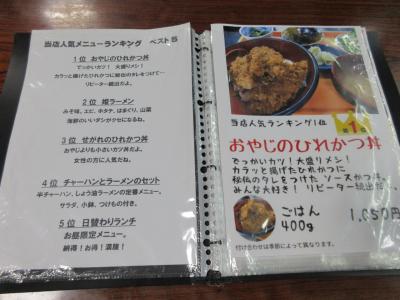 当店人気メニューランキング ベスト5
1位 おやじのひれかつ丼
でっかいカツ！ 大盛りメシ！
カラッと揚げたひれかつに秘伝のタレをつけて…
リピーター続出だよ。
2位 姫ラーメン
みそ味。エビ、ホタテ、はまぐり、山菜
海鮮のいいダシがクセになるね。
3位 せがれのひれかつ丼
おやじよりも小さいカツ丼だよ。
女性の方に人気だね。
4位 チャーハンとラーメンのセット
半チャーハン、しょう油ラーメンの定番メニュー。
サラダ、小鉢、つけもの付き。
5位 日替わりランチ
お昼限定メニュー。
納得！お得！満腹！
当店人気ランキング1位
第1位
おやじのひれかつ丼
でっかいカツ！大盛りメシ！
カラッと揚げたひれかつに
秘伝のタレをつけた ソースかつ丼。
みんな大好き！ リピーター続出だ
ごはん
400g
1,050円
付け合わせは季節によって異なります。